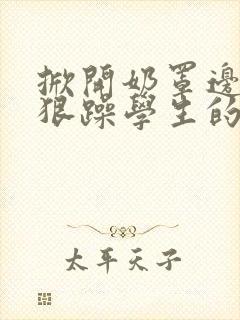 掀開奶罩邊
狠躁學生的
太平天子